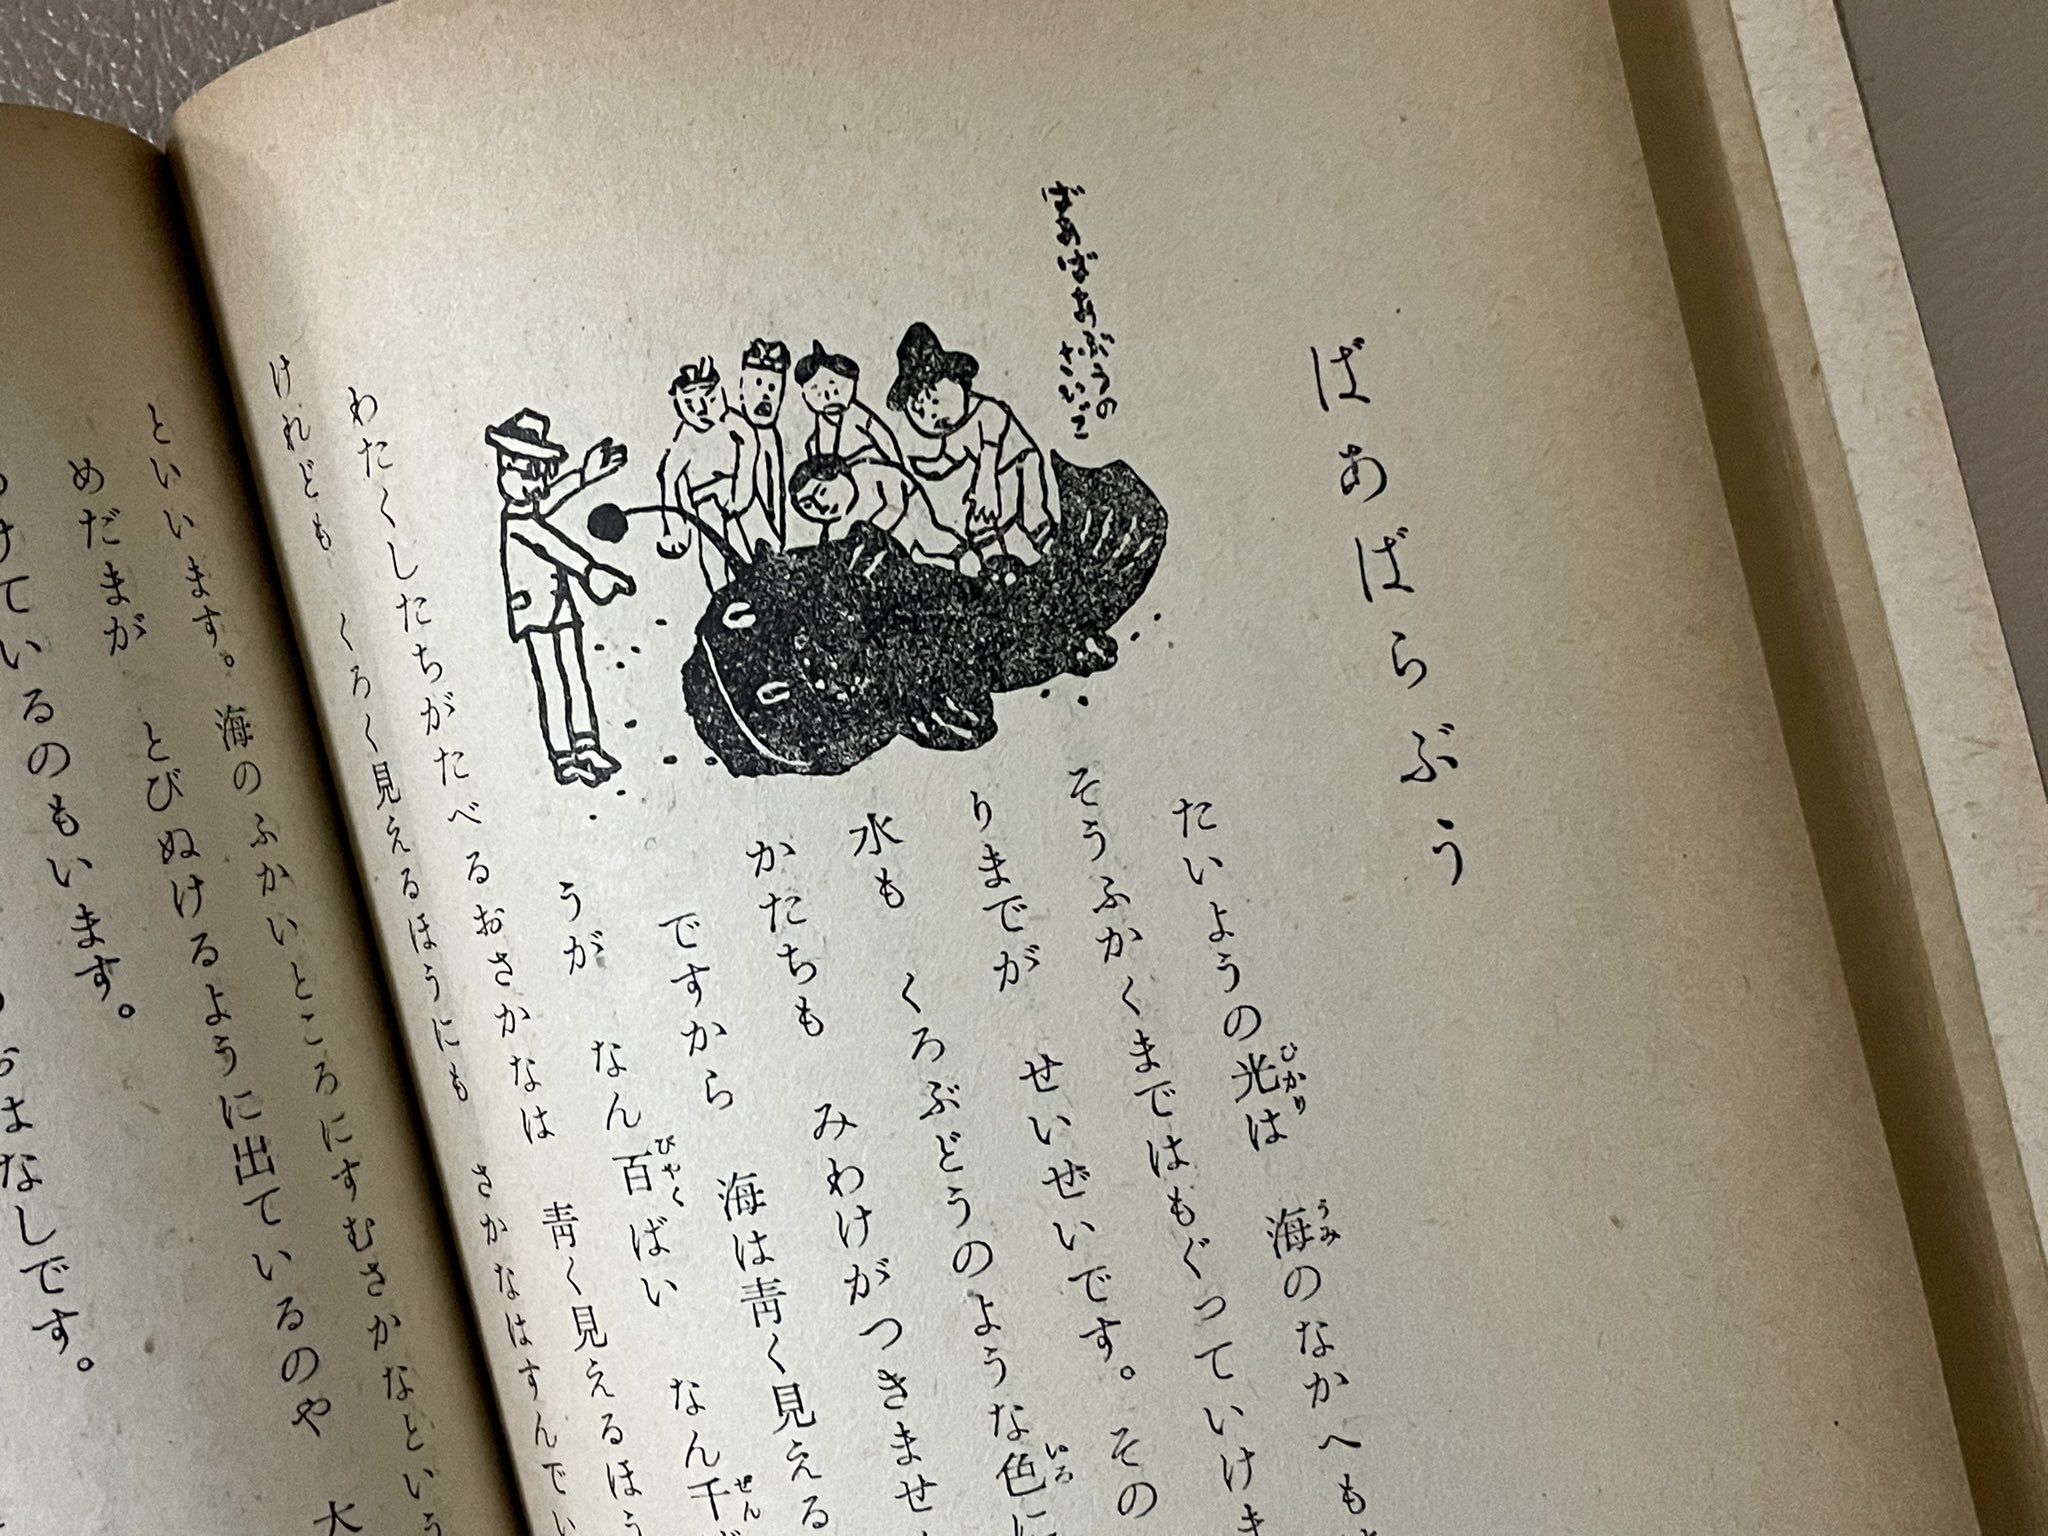 ばあばらぶう
ばあばあぶうの
さいご
たいようの光は　海のなかへも
そうふかくまではもぐっていけま
りまでが　せいぜいです。その
水も　くろぶどうのような色に
かたちも　みわけがつきませ
ですから　海は靑く見える
うが　なん百ばい　なん千
わたくしたちがたべるおさかなは　靑く見えるほう
けれども　くろく見えるほうにも　さかなはすんでい
といいます。海のふかいところにすむさかなという
めだまが　とびぬけるように出ているのや　大
けているのもいます。
はなしです。